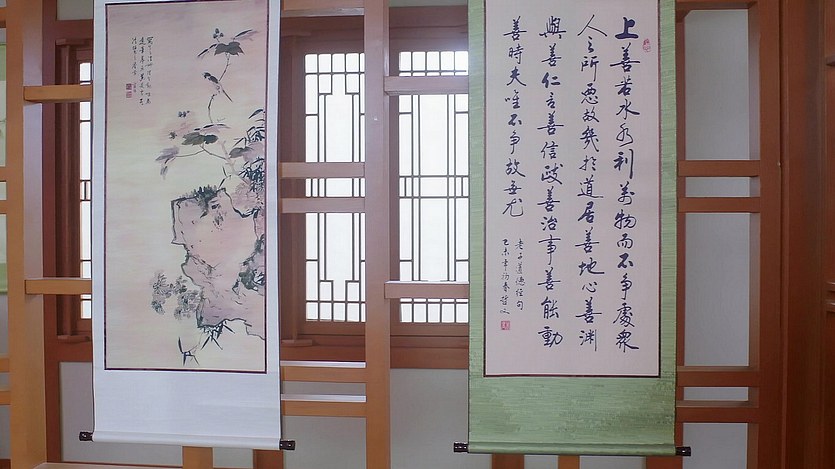 上善若水水利萬物而不争處衆
人之所惡故幾於道居善地心善渊
與善仁言善信政善治事善能動
善時夫唯不争故無尤
老子道德經句
乙未年初春